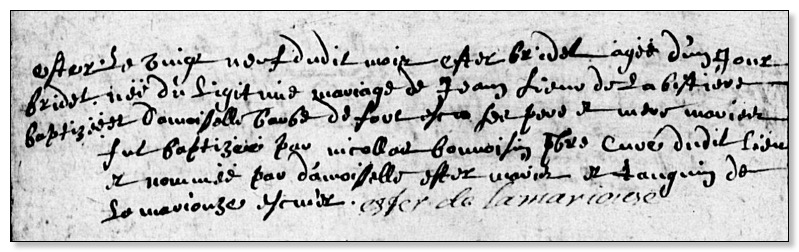 ester Le vingt neuf dudit mois ester bridel agée d'un Jour
bridel née du Ligitime mariage de Jean sieur de La bistiere
baptizée et damoisselle barbe de fort ses pere et mere mariez
fut baptizée par nicollas bonvoisin pbre Curé dudit Lieu
et nommée par damoisselle ester et tanguin de
La mariouze escuier. ester de lamariouse